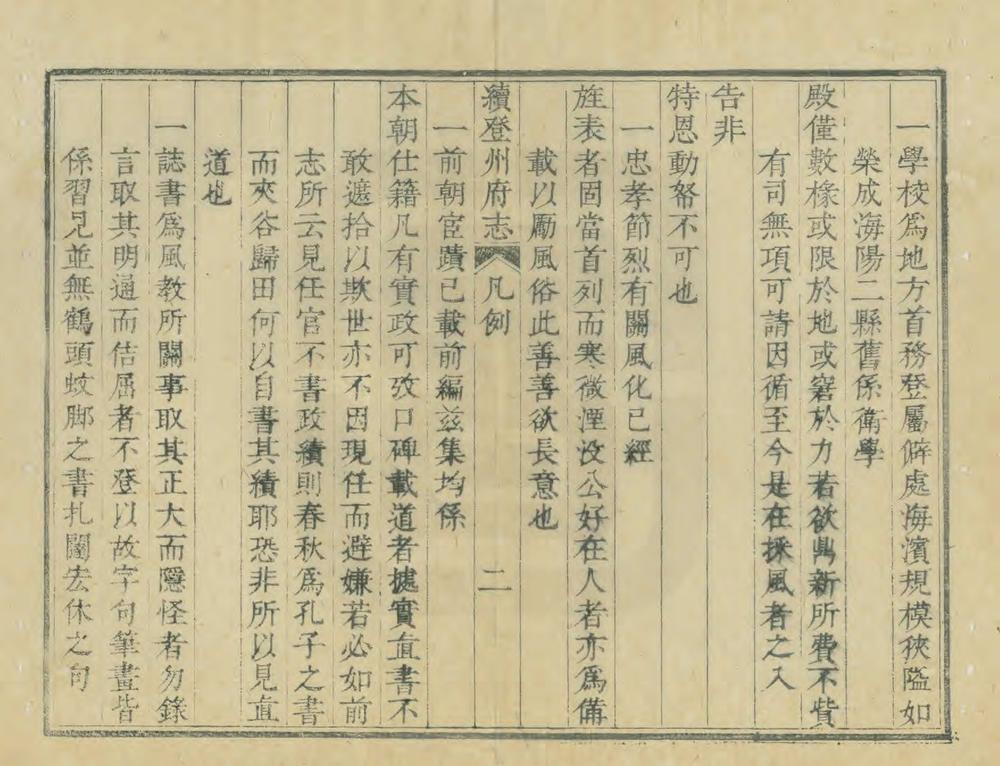 一學校爲地方首務登屬僻處海濱規模狹隘如
榮成海陽二縣舊係衛學
殿僅數椽或限於地或窘於力若欲鼎新所費不貲
有司無項可請因循至今是在採風者之入
告非
特恩動帑不可也
一忠孝節烈有關風化已經
旌表者固當首列而寒微湮没公好在人者亦爲備
載以勵風俗此善善欲長意也
續登州府志 凡例 二
一前朝宦蹟已載前編兹集均係
本朝仕籍凡有實政可攷口碑載道者據實直書不
敢遽拾以欺世亦不因現任而避嫌若必如前
志所云見任官不書政績則春秋爲孔子之書
而夾谷歸田何以自書其績耶恐非所以見直
道也
一誌書爲風教所關事取其正大而隱怪者勿錄
言取其明通而佶屈者不登以故字句筆畫皆
係習見並無鶴頭蚊脚之書扎闥宏休之句